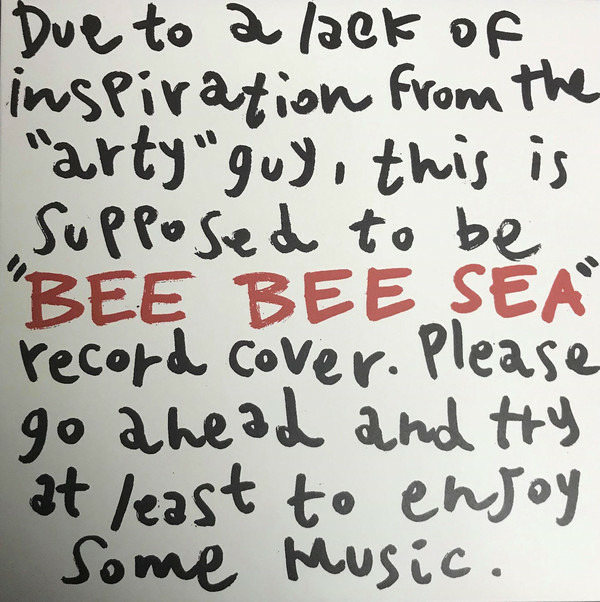 Due to a lack of
inspiration from the
"arty" guy, this is
supposed to be
"BEE BEE SEA"
record cover. Please
go ahead and try
at least to enjoy
some Music.